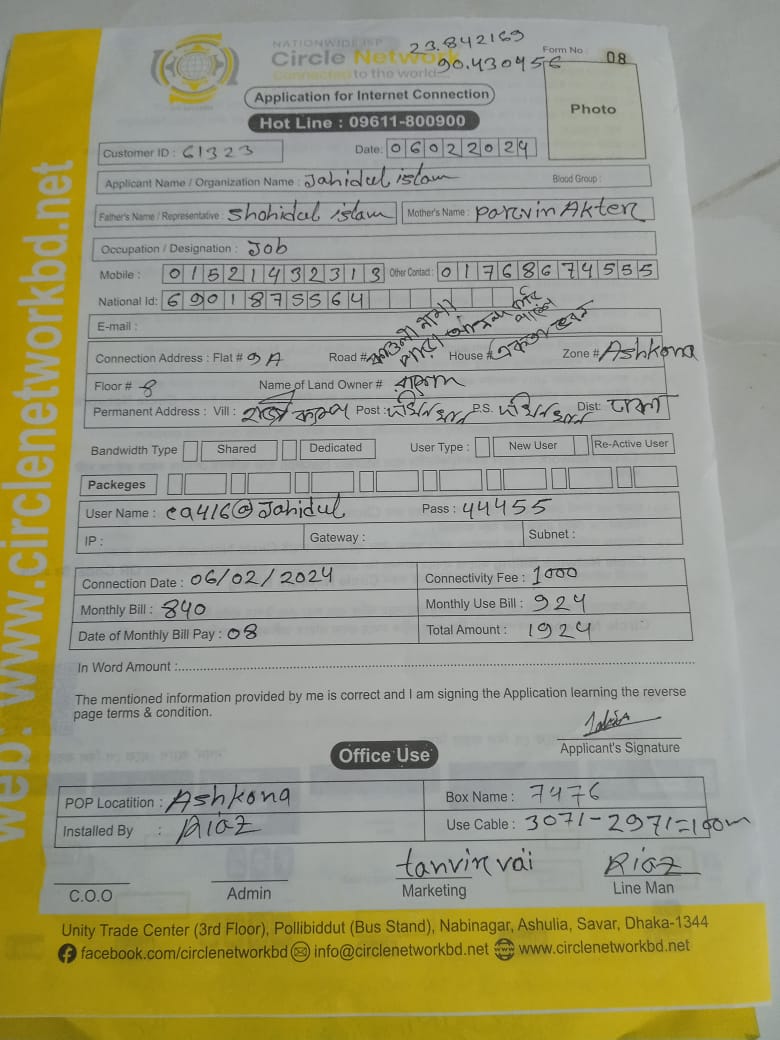 web: www.circlenetworkbd.net
NATIONWIDE ISP
Circle Network
Connected to the world...
23.842169
90.430456
Form No : 08
Photo
Application for Internet Connection
Hot Line : 09611-800900
Customer ID : 61323 Date: 06022024
Applicant Name / Organization Name : Jahidul islam Blood Group :
Father's Name / Representative : Shohidul islam Mother's Name : parvin Akter
Occupation / Designation : Job
Mobile : 01521432313 Other Contact : 01768674555
National Id: 6901875564
E-mail :
Connection Address : Flat # 9A Road # House # Zone # Ashkona
Floor # 8 Name of Land Owner #
Permanent Address : Vill : Post : P.S. Dist: ঢাকা
Bandwidth Type Shared Dedicated User Type : New User Re-Active User
Packeges
User Name : ca416@Jahidul Pass : 44455
IP : Gateway : Subnet :
Connection Date : 06/02/2024 Connectivity Fee : 1000
Monthly Bill : 840 Monthly Use Bill : 924
Date of Monthly Bill Pay : 08 Total Amount : 1924
In Word Amount :
The mentioned information provided by me is correct and I am signing the Application learning the reverse
page terms & condition.
Applicant's Signature
Office Use
POP Locatition : Ashkona Box Name : 7476
Installed By : Riaz Use Cable : 3071-2971=100m
tanvir vai Riaz
C.O.O Admin Marketing Line Man
Unity Trade Center (3rd Floor), Pollibiddut (Bus Stand), Nabinagar, Ashulia, Savar, Dhaka-1344
facebook.com/circlenetworkbd info@circlenetworkbd.net www.circlenetworkbd.net